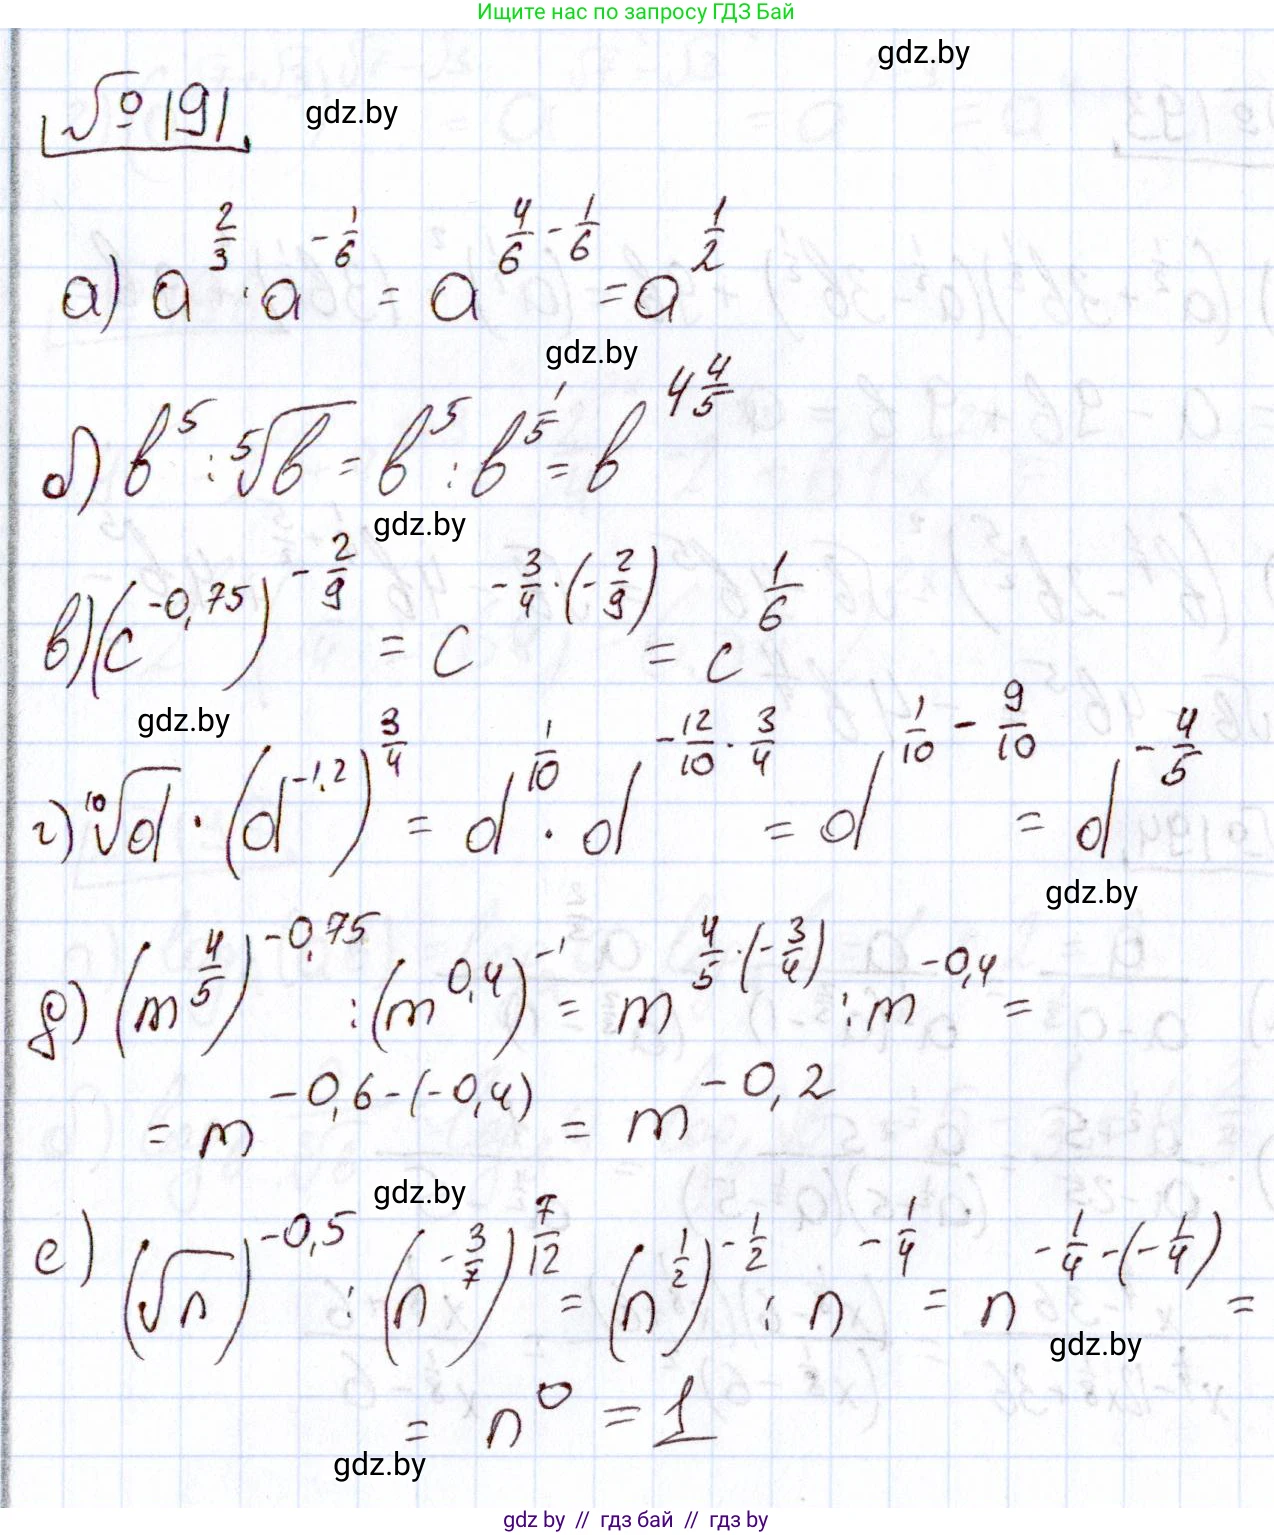 Ищите нас по запросу ГДЗ Бай
gdz.by
№ 191 gdz.by
а) a^{2/3} · a^{-1/6} = a^{4/6 - 1/6} = a^{1/2}
gdz.by
б) b^5 : ⁵√b = b^5 : b^{1/5} = b^{4 4/5}
gdz.by
в) (c^{-0,75})^{-2/9} = c^{-3/4·(-2/9)} = c^{1/6}
gdz.by
г) ¹⁰√d · (d^{-1,2})^{3/4} = d^{1/10} · d^{-12/10 · 3/4} = d^{1/10 - 9/10} = d^{-4/5}
gdz.by
д) (m^{4/5})^{-0,75} : (m^{0,4})^{-1} = m^{4/5·(-3/4)} : m^{-0,4} =
= m^{-0,6-(-0,4)} = m^{-0,2}
gdz.by
е) (√n)^{-0,5} : (n^{-3/7})^{7/12} = (n^{1/2})^{-1/2} : n^{-1/4} = n^{-1/4-(-1/4)} =
gdz.by
= n^0 = 1
gdz.by
gdz by // гдз бай // гдз by